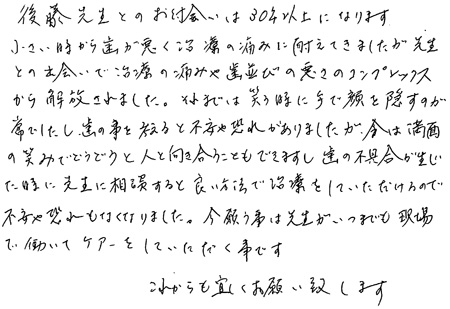 後藤先生とのお付会いは30年以上になります
小さい時から歯が悪く治療の痛みに耐えてきましたが先生
との出会いで治療の痛みや歯並びの悪さのコンプレックス
から解放されました。それまでは笑う時に手で顔を隠すのが
常でしたし歯の事を考ると不安や恐れがありましたが、今は満面
の笑みでどうどうと人と向き合うこともできますし歯の不具合が生じ
た時に先生に相談すると良い方法で治療をしていただけるので
不安や恐れもなくなりました。今願う事は先生がいつまでも現場
で働いてケアーをしていただく事です
これからも宜しくお願い致します